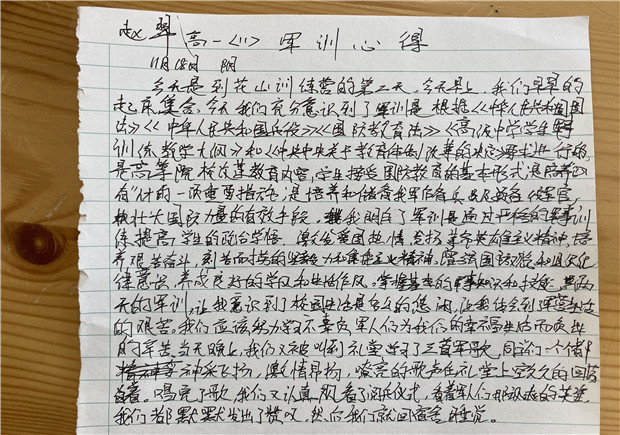 赵翠 高一〈11〉 军训心得
11月18日 阴
今天是到花山训练营的第二天,今天早上,我们早早的
起床集合。今天我们充分意识到了军训是根据《中华人民共和国国
法》《中华人民共和国兵役》《国防教育法》《高级中学学生军
训练教学大纲》和《中共中央关于教育体制改革的决定》要求进行的
是高等院校改革教育内容,学生接受国防教育的基本形式是培养
有"才的一项重要措施 是培养和储备我军后备兵员及预备役军官,
壮大国防力量的有效手段。我明白了军训是通过严格的军事训
练提高学生的政治学悟,激发爱国热情,发扬革命英雄主义精神,培
养艰苦奋斗,刻苦耐劳的坚毅力和集体主义精神,增强国防观念和组织纪
律意识,养成良好的学风和生活作风。掌握基本的军事知识和技能,两
天的军训,让我意识到了校园生活是多么的悠闲,让我体会到军营生活
的艰苦。我们应该努力学习不辜负军人们为我们的幸福生活而或出
的辛苦。当天晚上,我们又被叫到礼堂学习了三首军歌,同学们一个个
精神飞扬,激情昂扬,嘹亮的歌声在礼堂上空久久的回荡
着。唱完了歌,我们又认真观看了阅兵仪式,看着军人们那飒爽的英姿
我们都默默发出了赞叹,然后我们就回宿舍睡觉。